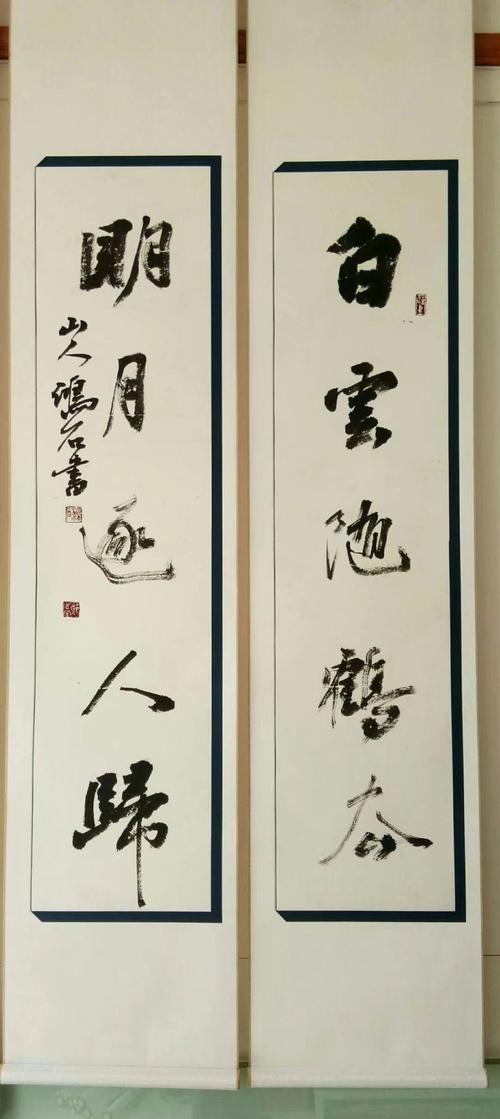 白雲随鶴
明月逐人歸
山人鴻石書